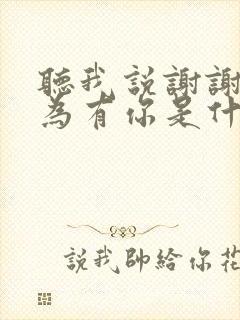 聽我説謝謝
為有你是什
説我帥給你花